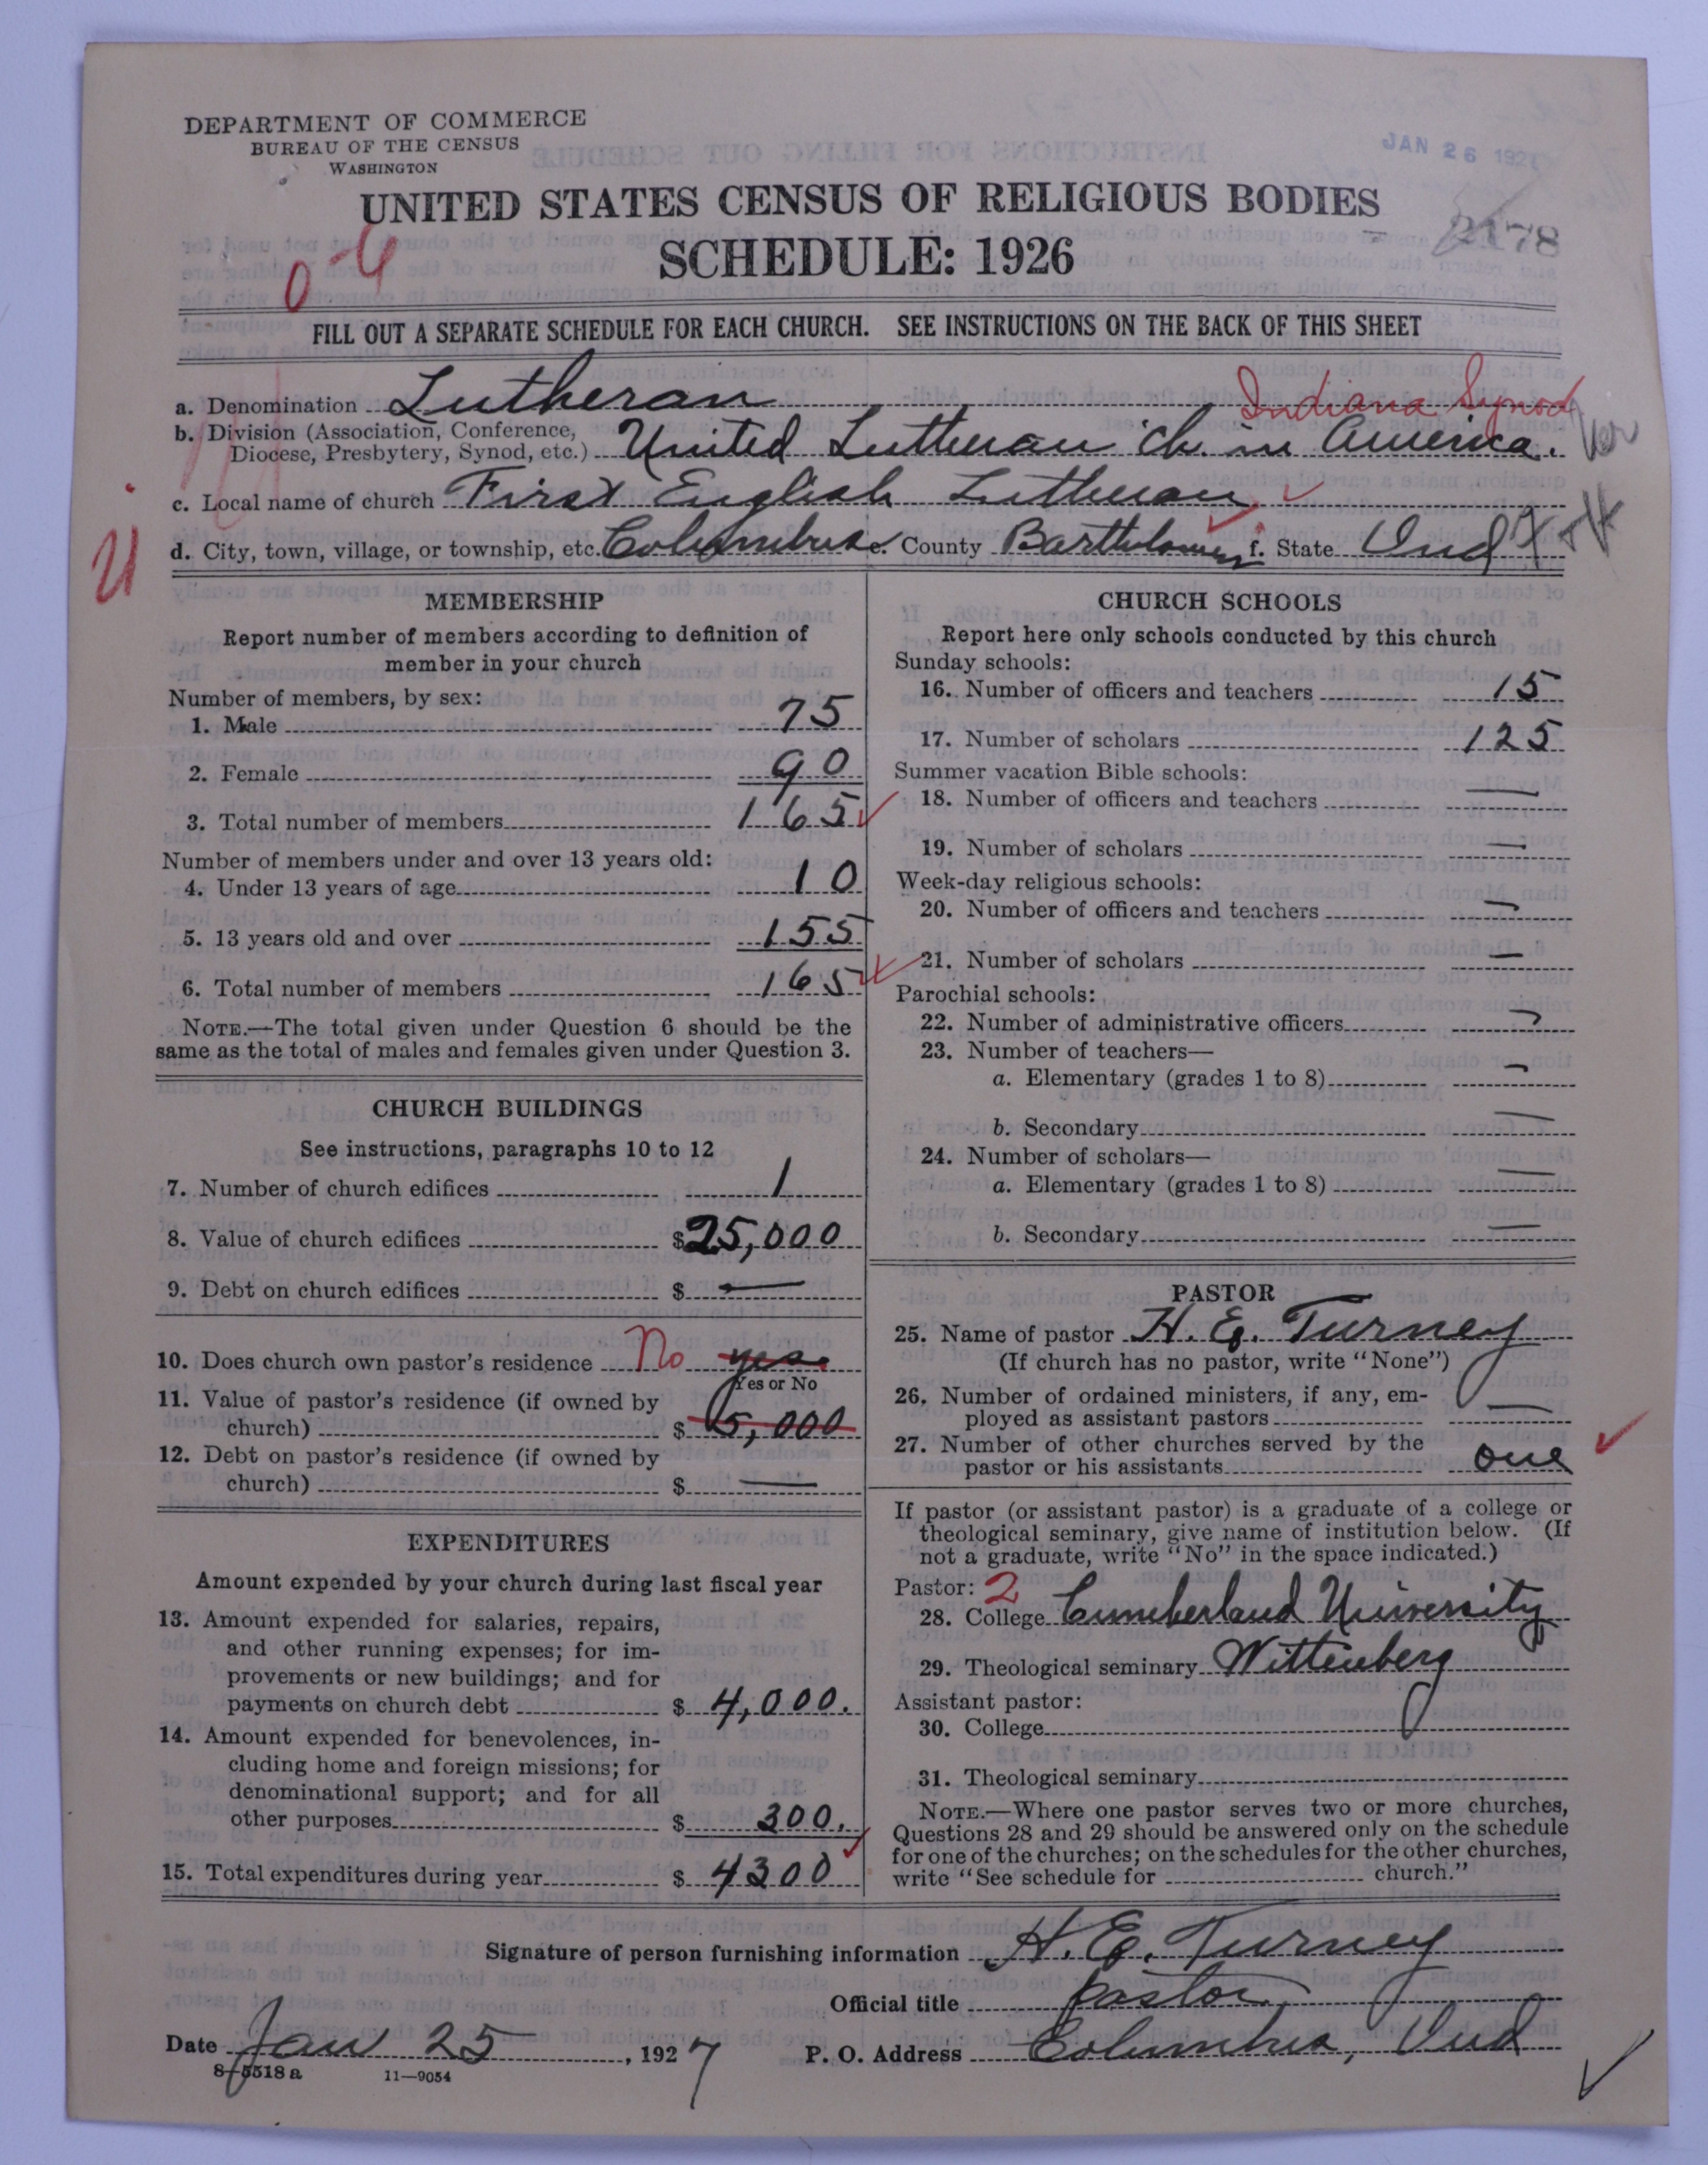 DEPARTMENT OF COMMERCE
BUREAU OF THE CENSUS
WASHINGTON
JAN 26 192
UNITED STATES CENSUS OF RELIGIOUS BODIES
SCHEDULE: 1926
2178
0-4
FILL OUT A SEPARATE SCHEDULE FOR EACH CHURCH. SEE INSTRUCTIONS ON THE BACK OF THIS SHEET
Indiana Synod
a. Denomination Lutheran
b. Division (Association, Conference, Diocese, Presbytery, Synod, etc.) United Lutheran Ch. in America.
c. Local name of church First English Lutheran
d. City, town, village, or township, etc. Columbus e. County Bartholomew f. State Ind
MEMBERSHIP
Report number of members according to definition of
member in your church
Number of members, by sex:
1. Male 75
2. Female 90
3. Total number of members 165
Number of members under and over 13 years old:
4. Under 13 years of age 10
5. 13 years old and over 155
6. Total number of members 165
NOTE.—The total given under Question 6 should be the
same as the total of males and females given under Question 3.
CHURCH BUILDINGS
See instructions, paragraphs 10 to 12
7. Number of church edifices 1
8. Value of church edifices $25,000
9. Debt on church edifices $ —
10. Does church own pastor's residence No yes
Yes or No
11. Value of pastor's residence (if owned by
church) $ 5,000
12. Debt on pastor's residence (if owned by
church) $ —
EXPENDITURES
Amount expended by your church during last fiscal year
13. Amount expended for salaries, repairs,
and other running expenses; for im-
provements or new buildings; and for
payments on church debt $ 4,000.
14. Amount expended for benevolences, in-
cluding home and foreign missions; for
denominational support; and for all
other purposes $ 300.
15. Total expenditures during year $ 4300
CHURCH SCHOOLS
Report here only schools conducted by this church
Sunday schools:
16. Number of officers and teachers 15
17. Number of scholars 125
Summer vacation Bible schools:
18. Number of officers and teachers —
19. Number of scholars —
Week-day religious schools:
20. Number of officers and teachers —
21. Number of scholars —
Parochial schools:
22. Number of administrative officers —
23. Number of teachers—
a. Elementary (grades 1 to 8) —
b. Secondary —
24. Number of scholars—
a. Elementary (grades 1 to 8) —
b. Secondary —
PASTOR
25. Name of pastor H. E. Turney
(If church has no pastor, write "None")
26. Number of ordained ministers, if any, em-
ployed as assistant pastors —
27. Number of other churches served by the
pastor or his assistants one
If pastor (or assistant pastor) is a graduate of a college or
theological seminary, give name of institution below. (If
not a graduate, write "No" in the space indicated.)
Pastor: 2
28. College Cumberland University
29. Theological seminary Wittenberg
Assistant pastor:
30. College
31. Theological seminary
NOTE.—Where one pastor serves two or more churches,
Questions 28 and 29 should be answered only on the schedule
for one of the churches; on the schedules for the other churches,
write "See schedule for ---------- church."
Signature of person furnishing information H. E. Turney
Official title pastor
Date Jan 25, 1927 P. O. Address Columbus, Ind
8-5518a 11—9054